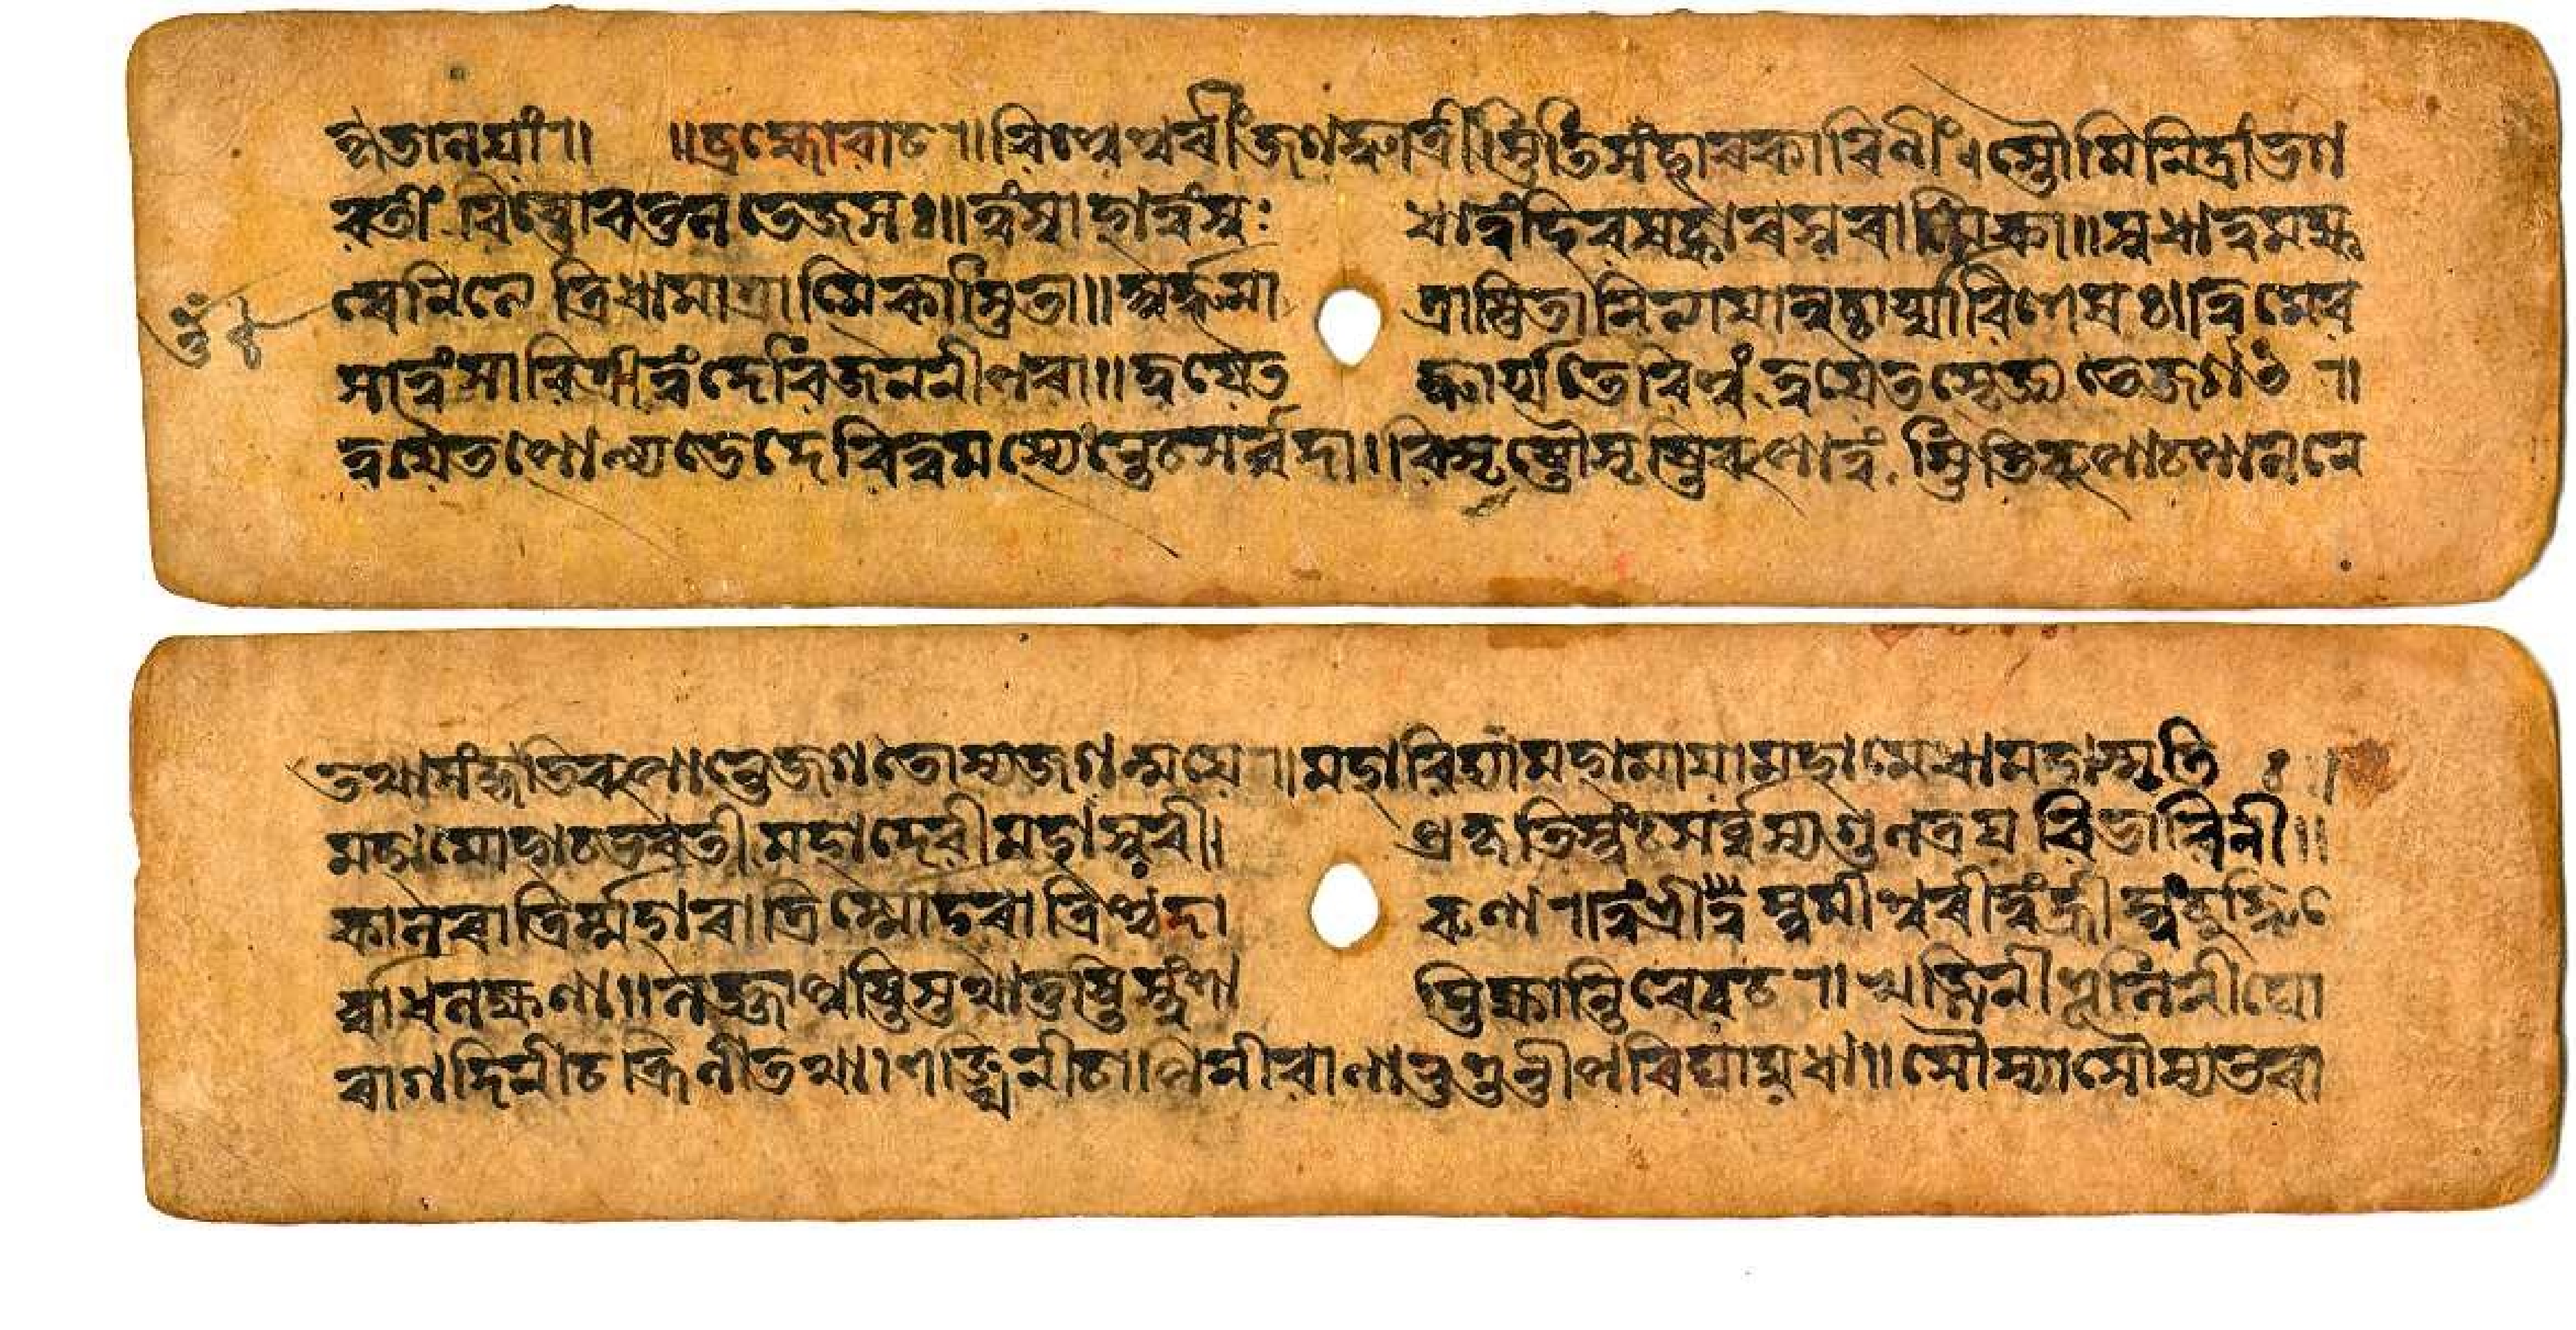 কৃতালয়াং॥ ॥ব্রহ্মোবাচ॥বিশ্বেশ্বৰীঁজগদ্ধাত্রীঁস্থিতিসংহাৰকাৰিনীঁ।স্তৌমিনিদ্রাঁভগ
বতীঁ বিষ্ণোৰতুলতেজসঃ॥ত্বংস্বাহাত্বংস্ব ধাত্বংহিবষট্কাৰস্বৰাত্মিকা॥সুধাত্বমক্ষ
ৰেনিত্যে ত্রিধামাত্রাত্মিকাস্থিতা॥অর্দ্ধমা ত্রাস্থিতানিত্যাযানুচ্চার্য্যাবিশেষতঃ।ত্বমেব
সাত্বংসাবিত্রীত্বংদেবিজননীপৰা॥ত্বয়ৈত দ্ধার্য্যতেবিশ্বং ত্বয়ৈতৎসৃজ্যতেজগৎ॥
ত্বয়ৈতৎপাল্যতেদেবিত্বমৎস্যন্তেচসর্ব্বদা।বিসৃষ্টৌসৃষ্টিৰূপাত্বং স্থিতিৰূপাচপালনে
তথাসংহৃতিৰূপান্তেজগতোস্যজগন্ময়ে॥মহাবিদ্যামহামায়ামহামেধামহাস্মৃতিঃ॥
মহামোহাচভবতীমহাদেবীমহাসুৰী। প্রকৃতিস্ত্বংচসর্ব্বস্যগুনত্রয়বিভাবিনী॥
কালৰাত্রির্ম্মহাৰাত্রির্ম্মোহৰাত্রিশ্চদা ৰুণা॥ত্বংশ্রীস্ত্বমীশ্বৰীত্বংহ্রীস্ত্বংবুদ্ধি
র্ব্বোধলক্ষণা॥লজ্জাপুষ্টিস্তথাতুষ্টিস্ত্বংশা ন্তিঃক্ষান্তিৰেবচ॥খড়্গিনীশূলিনীঘো
ৰাগদিনীচক্রিনীতথা।শঙ্খিনীচাপিনীবাণাভুশুণ্ডীপৰিঘায়ুধা॥সৌম্যাসৌম্যতৰা